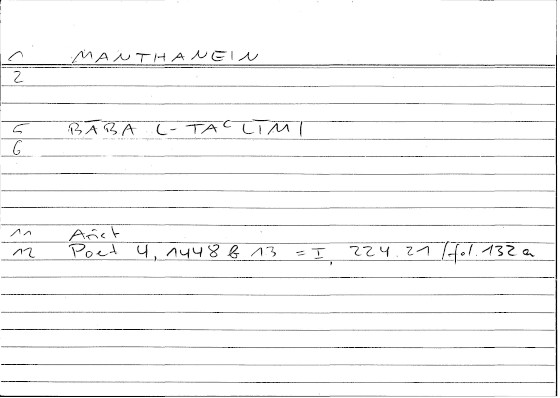 1 MANTHANEIN
2
5 BĀBA L-TAʿLĪMI
6
11 Arist
12 Poet 4, 1448 b 13 = I, 224.21 / fol. 132a